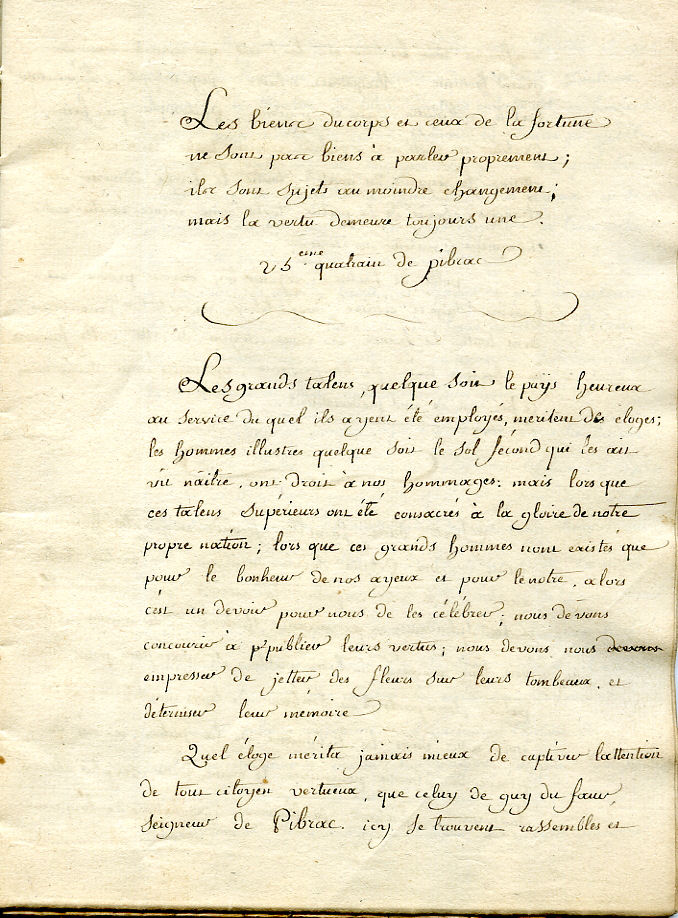 Les biens du corps et ceux de la fortune
ne sont pas biens à parler proprement ;
ils sont sujets au moindre changement ;
mais la vertu demeure toujours une .
25eme quatrain de pibrac
Les grands talens , quelque soit le païs heureux
au service du quel ils ayent été employés, meritent des éloges ;
les hommes illustres quelque soit le sol fécond qui les ait
vu näitre , ont droit à nos hommages : mais lors que
ces talens supérieurs ont été consacrés à la gloire de notre
propre nation ; lors que ces grands hommes nont existés que
pour le bonheur de nos ayeux et pour le notre , alors
c'est un devoir pour nous de les célébrer ; nous devons
concourir à publier leurs vertus ; nous devons nous devons
empresser de jetter des fleurs sur leurs tombeaux , et
déterniser leur mémoire
Quel éloge mérita jamais mieux de captiver lattention
de tout citoyen vertueux , que celuy de guy du faur ,
seigneur de Pibrac . icy se trouvent rassembles et